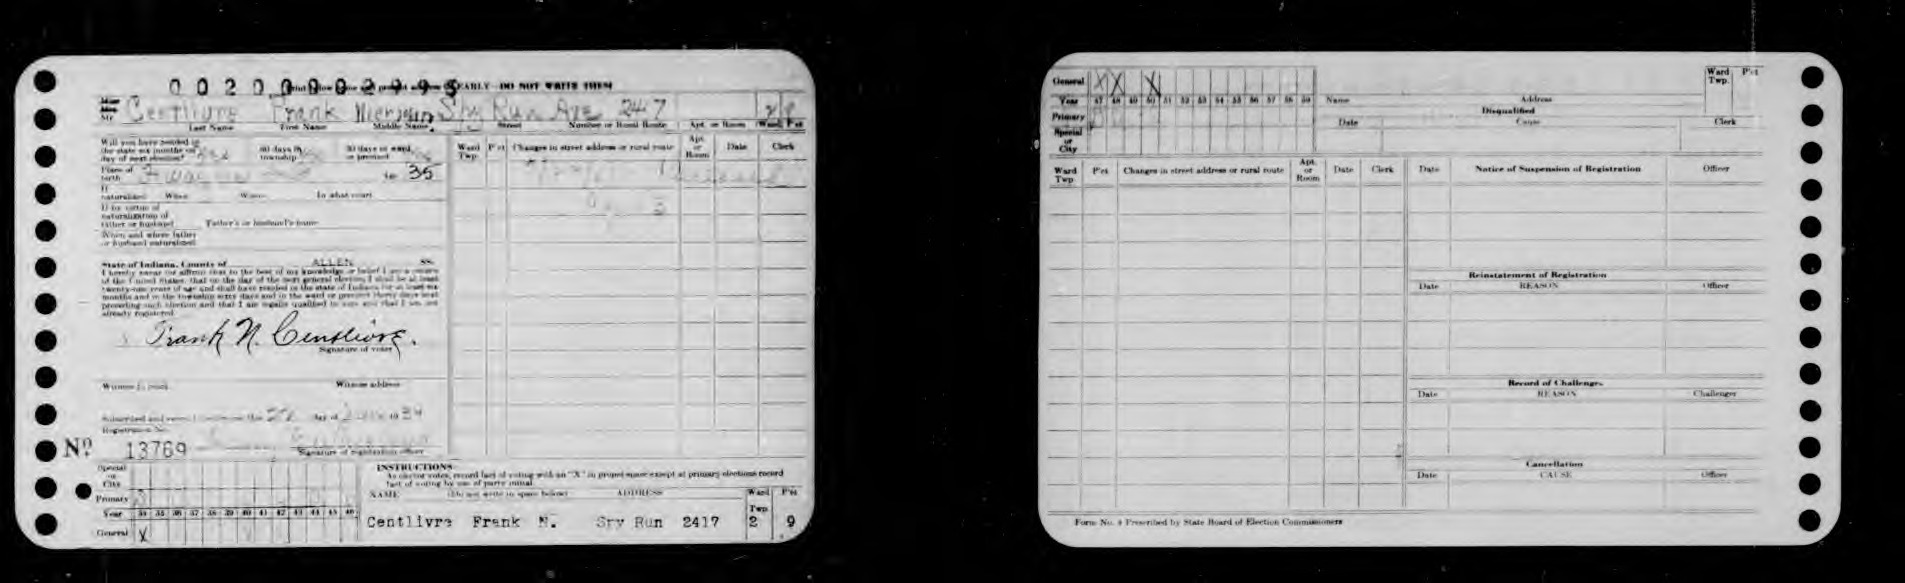 0020000299S
PRINT CLEARLY DO NOT WRITE THEM
Mr Centlivre Frank Spy Run Ave 2417 2 9
Last Name First Name Middle Name Street Number or Rural Route Apt. or Room Ward P'ct
Will you have resided in
the state six months on 60 days in 30 days in ward
day of next election? township or precinct
Place of
birth Ft Wayne 35
If
naturalized When Where In what court
If by virtue of
naturalization of
father or husband Father's or husband's name
When and where father
or husband naturalized
Ward Twp. P'ct Changes in street address or rural route Apt. or Room Date Clerk
State of Indiana, County of ALLEN ss.
I hereby swear (or affirm) that to the best of my knowledge or belief I am a citizen
of the United States, that on the day of the next general election I shall be at least
twenty-one years of age and shall have resided in the state of Indiana for at least six
months and in the township sixty days and in the ward or precinct thirty days next
preceding such election and that I am legally qualified to vote and that I am not
already registered.
Frank N. Centlivre.
Signature of voter
Witness to mark Witness address
Subscribed and sworn to before me this day of 1934
Registration No.
No 13769
Signature of registration officer
Special or City
Primary
Year 34 35 36 37 38 39 40 41 42 43 44 45 46
General X
INSTRUCTIONS
As elector votes, record fact of voting with an "X" in proper space except at primary elections record
fact of voting by use of party initial.
NAME (Do not write in space below) ADDRESS Ward Twp. P'ct
Centlivre Frank N. Spy Run 2417 2 9
General X X X
Year 47 48 49 50 51 52 53 54 55 56 57 58 59
Primary
Special or City
Name Address Ward Twp. P'ct
Disqualified
Date Cause Clerk
Ward Twp. P'ct Changes in street address or rural route Apt. or Room Date Clerk
Date Notice of Suspension of Registration Officer
Reinstatement of Registration
Date REASON Officer
Record of Challenges
Date REASON Challenger
Cancellation
Date CAUSE Officer
Form No. 4 Prescribed by State Board of Election Commissioners